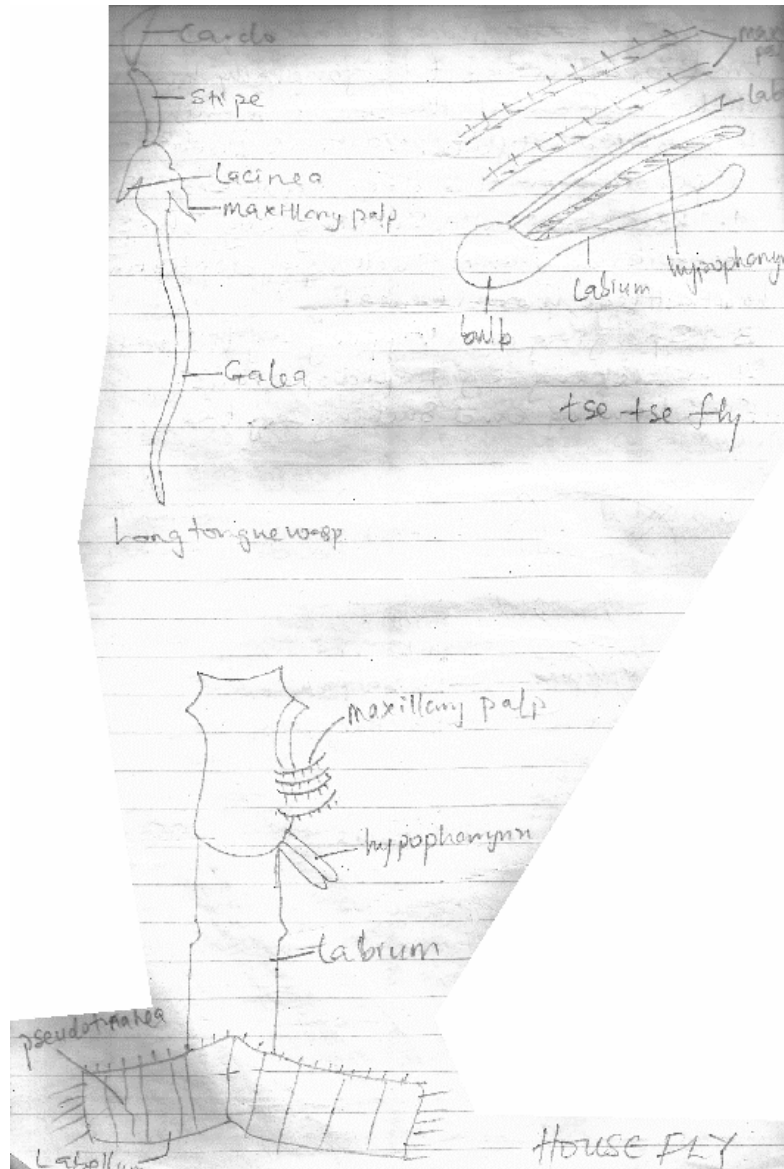 Cardo
Stipe
Lacinea
maxillary palp
Galea
Long tongue wasp
labium
hypopharyn
bulb
tse-tse fly
maxillary palp
hypopharynx
Labrum
Labellum
HOUSE FLY